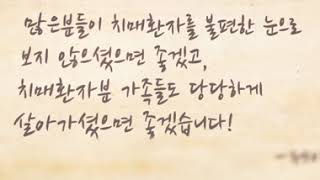 많은분들이 치매환자를 불편한 눈으로
보지 않으셨으면 좋겠고,
치매환자분 가족들도 당당하게
살아가셨으면 좋겠습니다!